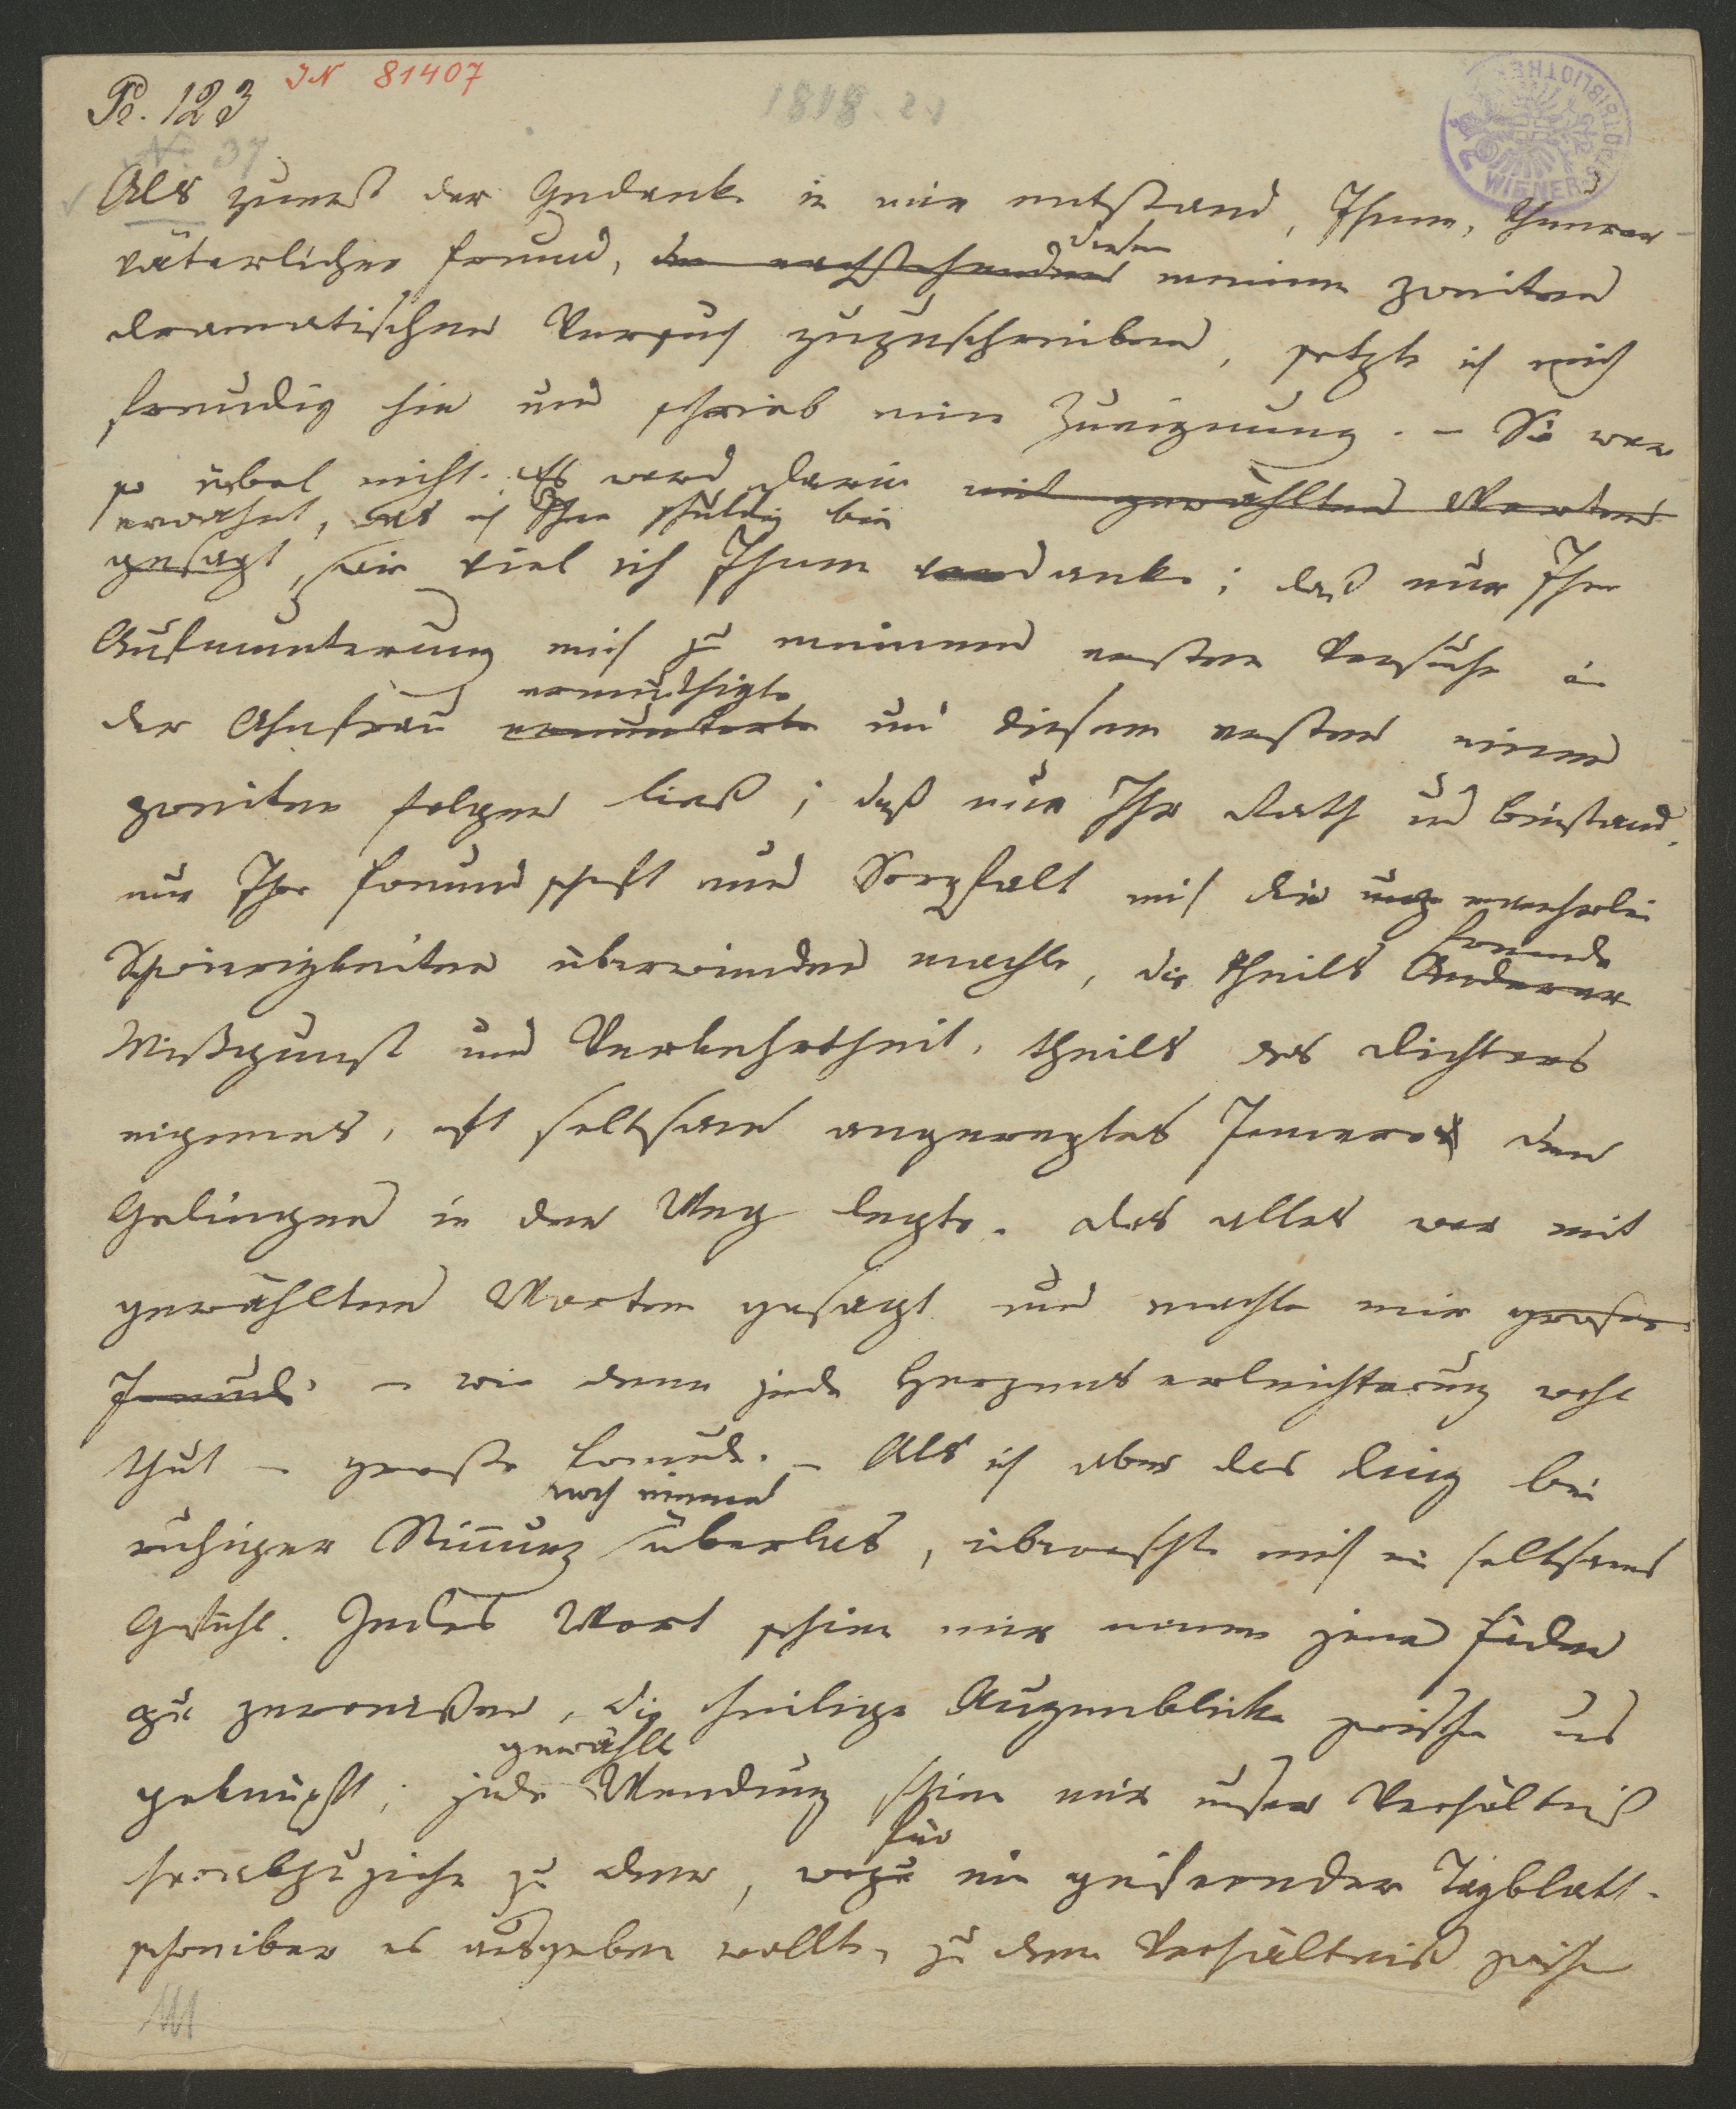 Pr. 123 IN 81407
1818. 21
No 37
WIENER STADTBIBLIOTHEK
Als zuerst der Gedanke in mir entstand, Ihnen, theurer
väterlicher Freund, den nachstehenden diesen meinen zweiten
dramatischen Versuch zuzuschreiben, setzte ich mich
freudig hin und schrieb eine Zueignung. – Sie war
so übel nicht. Es ward darin mit gewählten Worten
erwähnt, was ich Ihnen schuldig bin
gesagt, wie viel ich Ihnen verdanke; daß nur Ihre
Aufmunterung mich zu meinem ersten Versuche in
ermuthigte
der Ahnfrau ermunterte und diesem ersten einen
zweiten folgen ließ; daß nur Ihr Rath und Beistand,
nur Ihre Freundschaft und Sorgfalt mich die mancherlei
fremde
Schwierigkeiten überwinden machte, die theils Anderer
Mißgunst und Verkehrtheit, theils des Dichters
eigenes, oft seltsam angeregtes Inneres dem
Gelingen in den Weg legte. Das alles war mit
gewählten Worten gesagt und machte mir große
Freude – wie denn jede Herzenserleichterung wohl
thut – große Freude. – Als ich aber das Ding bei
noch einmal
ruhiger Stimmung überlas, überraschte mich ein seltsames
Gefühl. Jedes Wort schien mir einen jener Fäden
zu zerreißen, die heilige Augenblicke zwischen uns
gewählte
geknüpft; jede Wendung schien mir unser Verhältniß
für
herabzuziehen zu dem, wozu ein geifernder Tagblatt-
schreiber es ausgeben wollte, zu dem Verhältniß zwischen